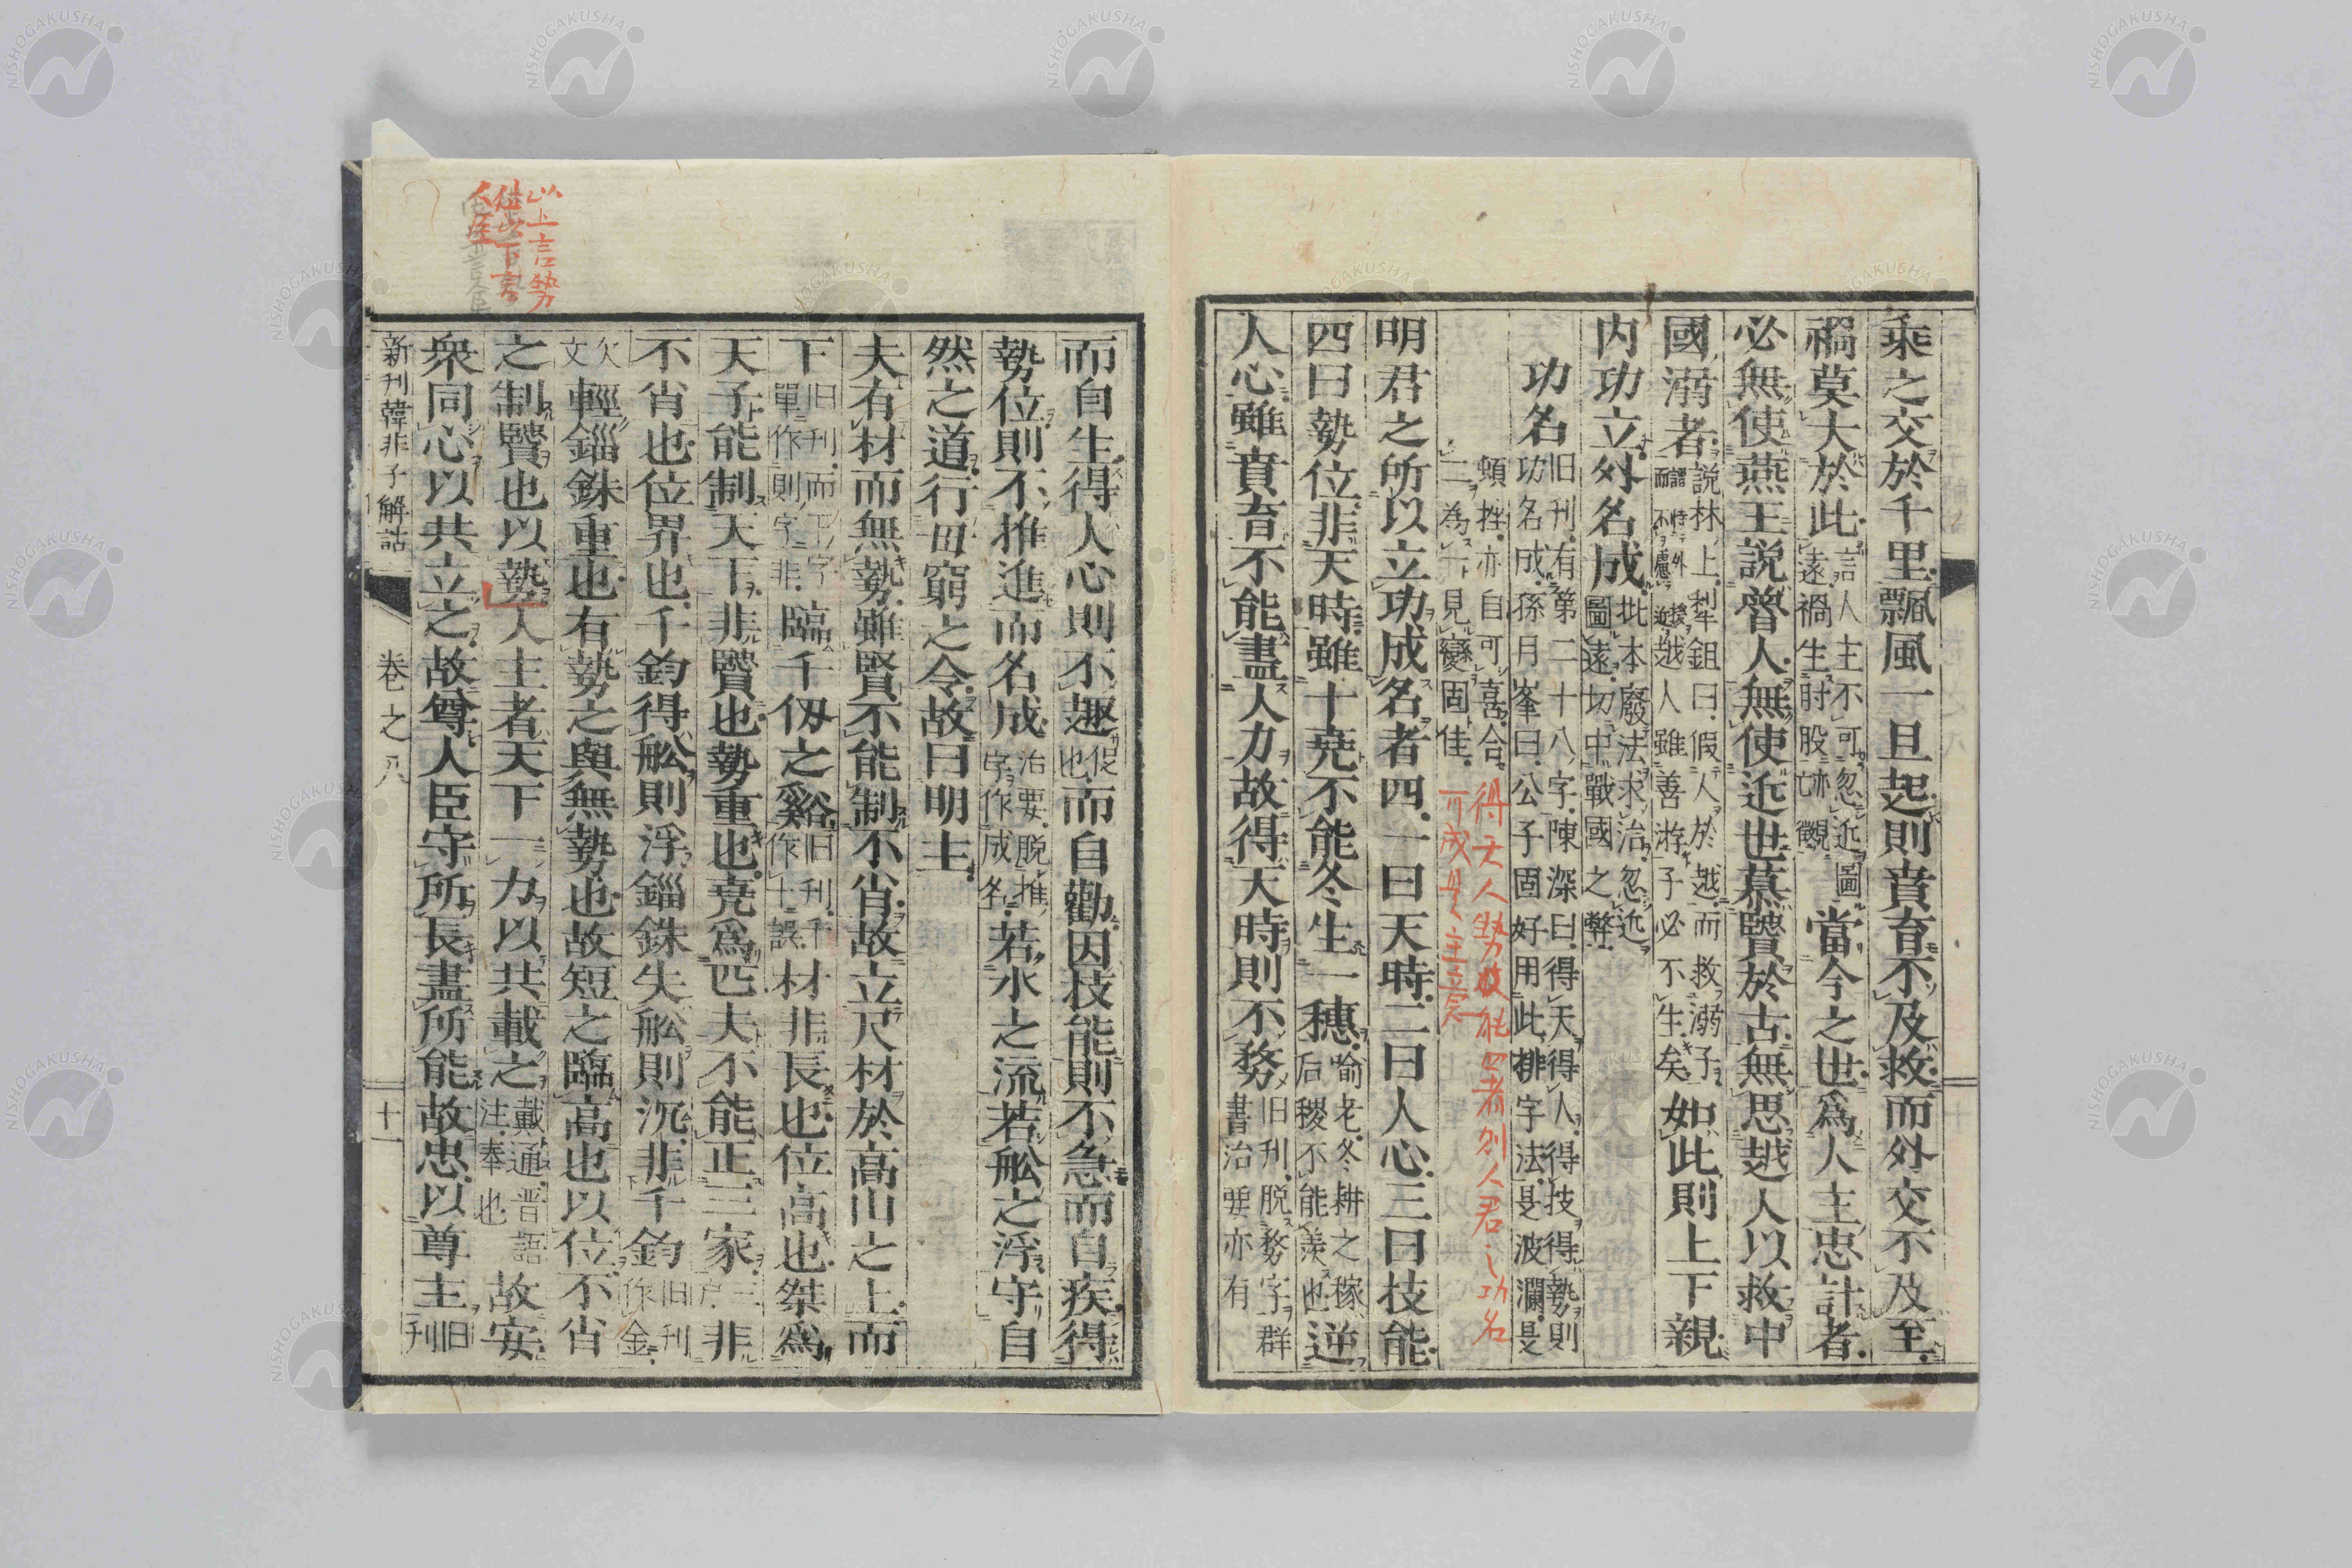 乘之交於千里飄風一旦起則賁育不及救而外交不及至
禍莫大於此言人主不可忽近圖遠禍生肘股當今之世爲人主忠計者
必無使燕王説魯人無使近世慕賢於古無思越人以救中
國溺者説林上犁鉏曰假人於越而救溺子越人雖善游子必不生矣如此則上下親
内功立外名成批本廢法求治忽近圖遠切中戰國之弊
功名旧刊有第二十八字陳深曰得天得人得技得勢則功名成孫月峯曰公子固好用此排字法是波瀾是
挫亦自可喜合二為一見變固佳
得天人勢技能四者則人君之功名可成是主意
明君之所以立功成名者四一曰天時二曰人心三曰技能
四曰勢位非天時雖十堯不能冬生一穗喩老冬耕之稼后稷不能羨也逆
人心雖賁育不能盡人力故得天時則不務旧刊脱務字群書治要亦有
而自生得人心則不趣促也而自勸因技能則不急而自疾得
勢位則不推進而名成治要脱推字作成名若水之流若舩之浮守自
然之道行毋窮之令故曰明主
夫有材而無勢雖賢不能制不肖故立尺材於高山之上而
下旧刊而下字單作則字非臨千仭之谿旧刊千作十誤材非長也位高也桀爲
天子能制天下非賢也勢重也堯爲匹夫不能正三家三戸非
不肖也位卑也千鈞得舩則浮錙銖失舩則沉非千鈞旧刊作金
欠文輕錙銖重也有勢之與無勢也故短之臨高也以位不肖
之制賢也以勢人主者天下一力以共載之戴通晋語注奉也故安
衆同心以共立之故尊人臣守所長盡所能故忠以尊主旧刊
新刊韓非子解詁 卷之八 十一
以上言勢
位以下言
人臣